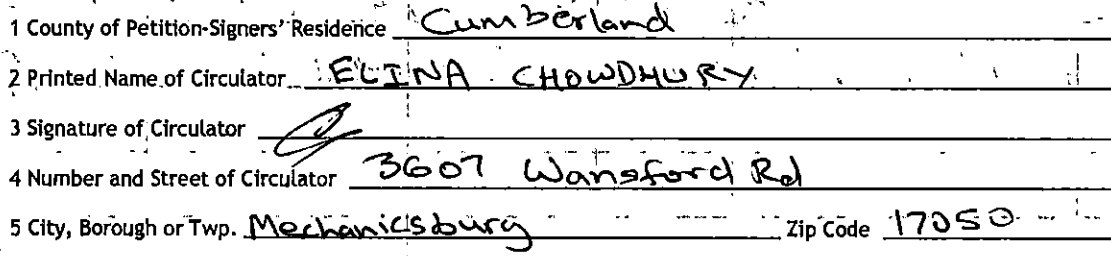 1 County of Petition-Signers' Residence Cumberland
2 Printed Name of Circulator ELINA CHOWDHURY
3 Signature of Circulator
4 Number and Street of Circulator 3607 Wansford Rd
5 City, Borough or Twp. Mechanicsburg Zip Code 17050